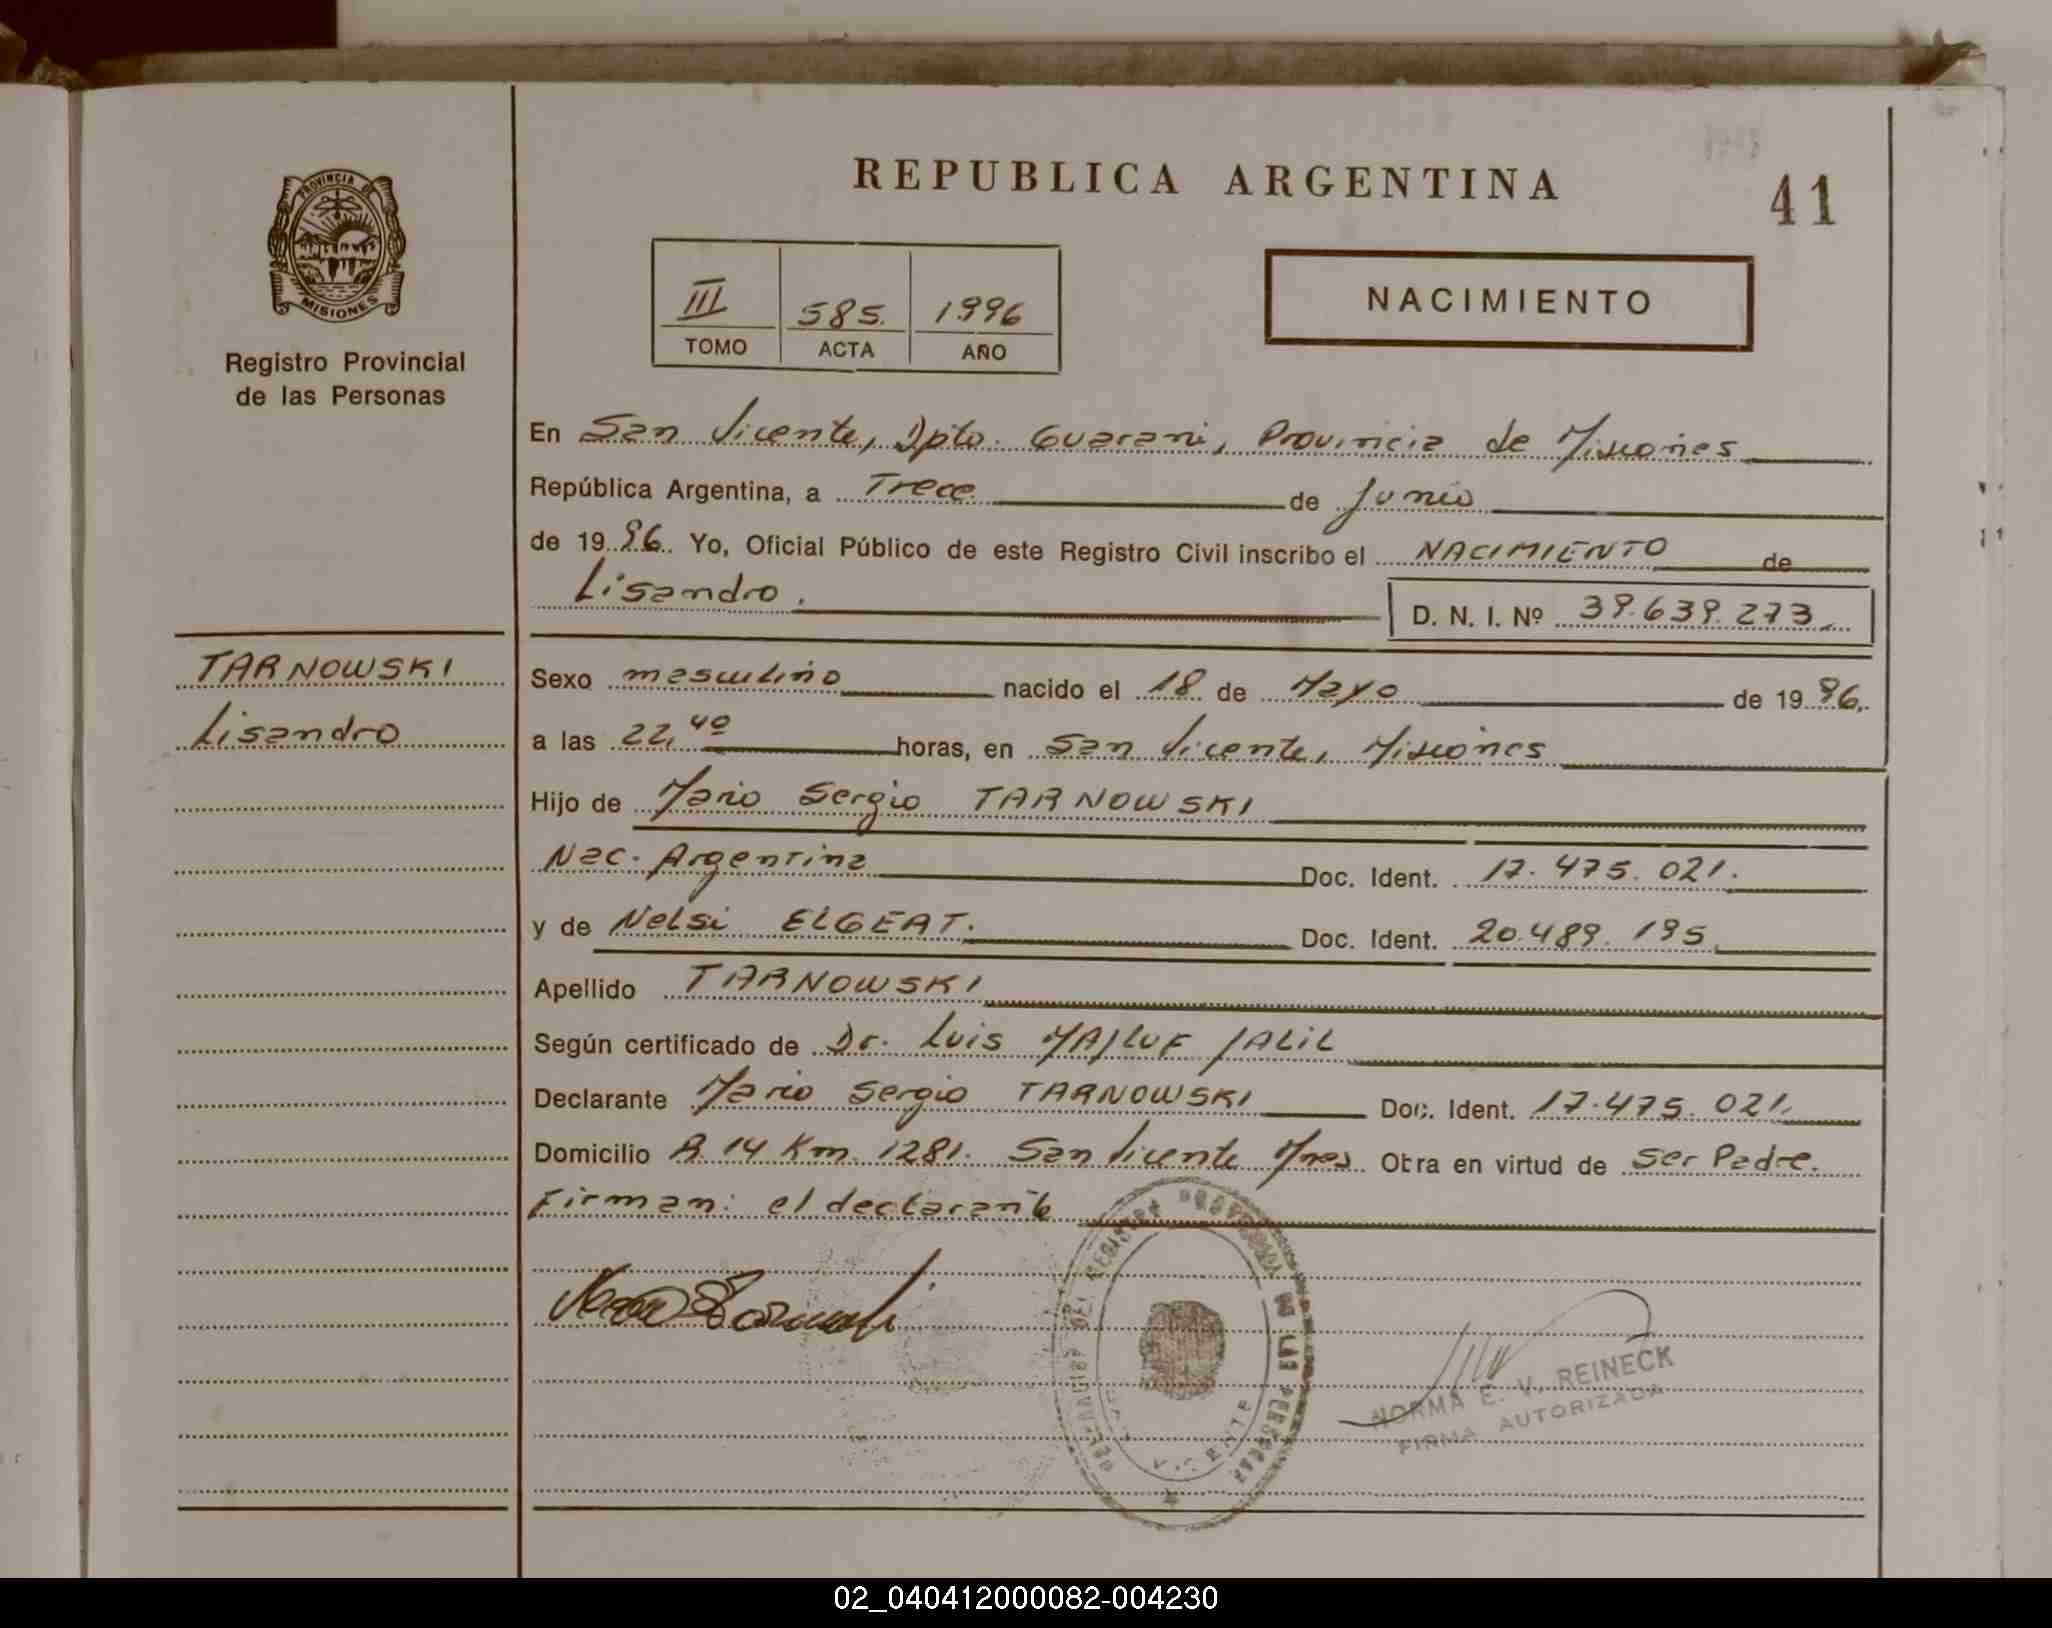 REPUBLICA ARGENTINA
41
PROVINCIA DE
MISIONES
Registro Provincial
de las Personas
III 585. 1996
TOMO ACTA AÑO
NACIMIENTO
En San Vicente, Dpto. Guarani, Provincia de Misiones
República Argentina, a Trece de Junio
de 1996. Yo, Oficial Público de este Registro Civil inscribo el NACIMIENTO de
Lisandro. D. N. I. Nº 39.639.273.
TARNOWSKI
Lisandro
Sexo masculino nacido el 18 de Mayo de 1996.
a las 22,40 horas, en San Vicente, Misiones
Hijo de Mario Sergio TARNOWSKI
Nac. Argentina Doc. Ident. 17.475.021.
y de Nelsi ELGEAT. Doc. Ident. 20.489.195
Apellido TARNOWSKI
Según certificado de Dr. Luis MAJLUF JALIL
Declarante Mario Sergio TARNOWSKI Doc. Ident. 17.475.021.
Domicilio R. 14 Km. 1281. San Vicente Mnes. Obra en virtud de Ser Padre.
Firman: el declarante
DE LAS PERSONAS
VICENTE
NORMA E. V. REINECK
FIRMA AUTORIZADA
02_040412000082-004230